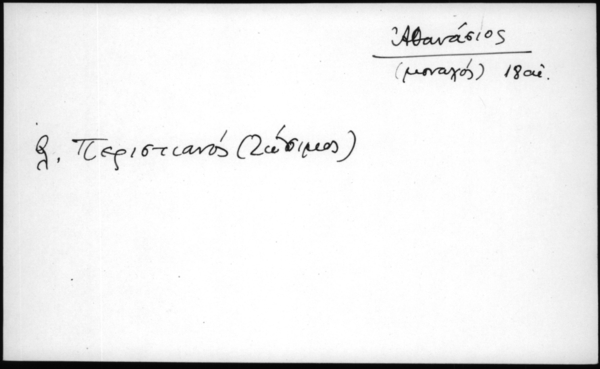 Ἀθανάσιος
(μοναχός) 18 αἰ.
βλ. Περιστιανός (Ζώσιμος)